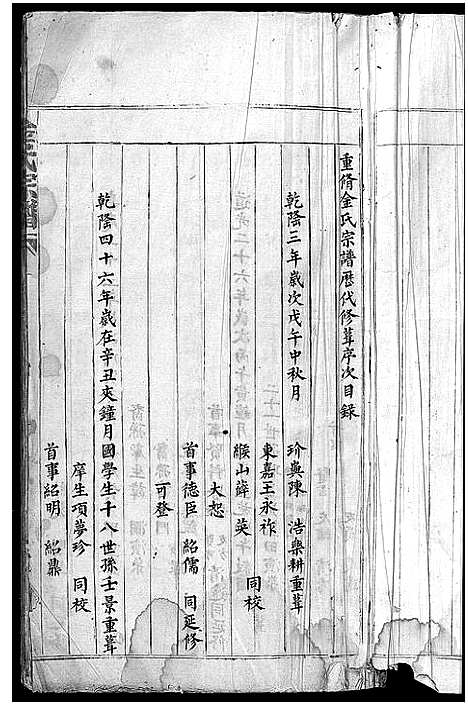 重脩金氏宗譜歷代修葺序次目錄
乾隆三年歲次戊午中秋月 珍輿陳 浩樂耕重葺
東嘉王永祚
緱山薛英 同校
大恕
首事德臣 紹儒 同延修
可登
乾隆四十六年歲在辛丑夾鐘月國學生十八世孫士景重葺
庠生項夢珍 同校
首事紹明 紹鼎
金氏宗譜